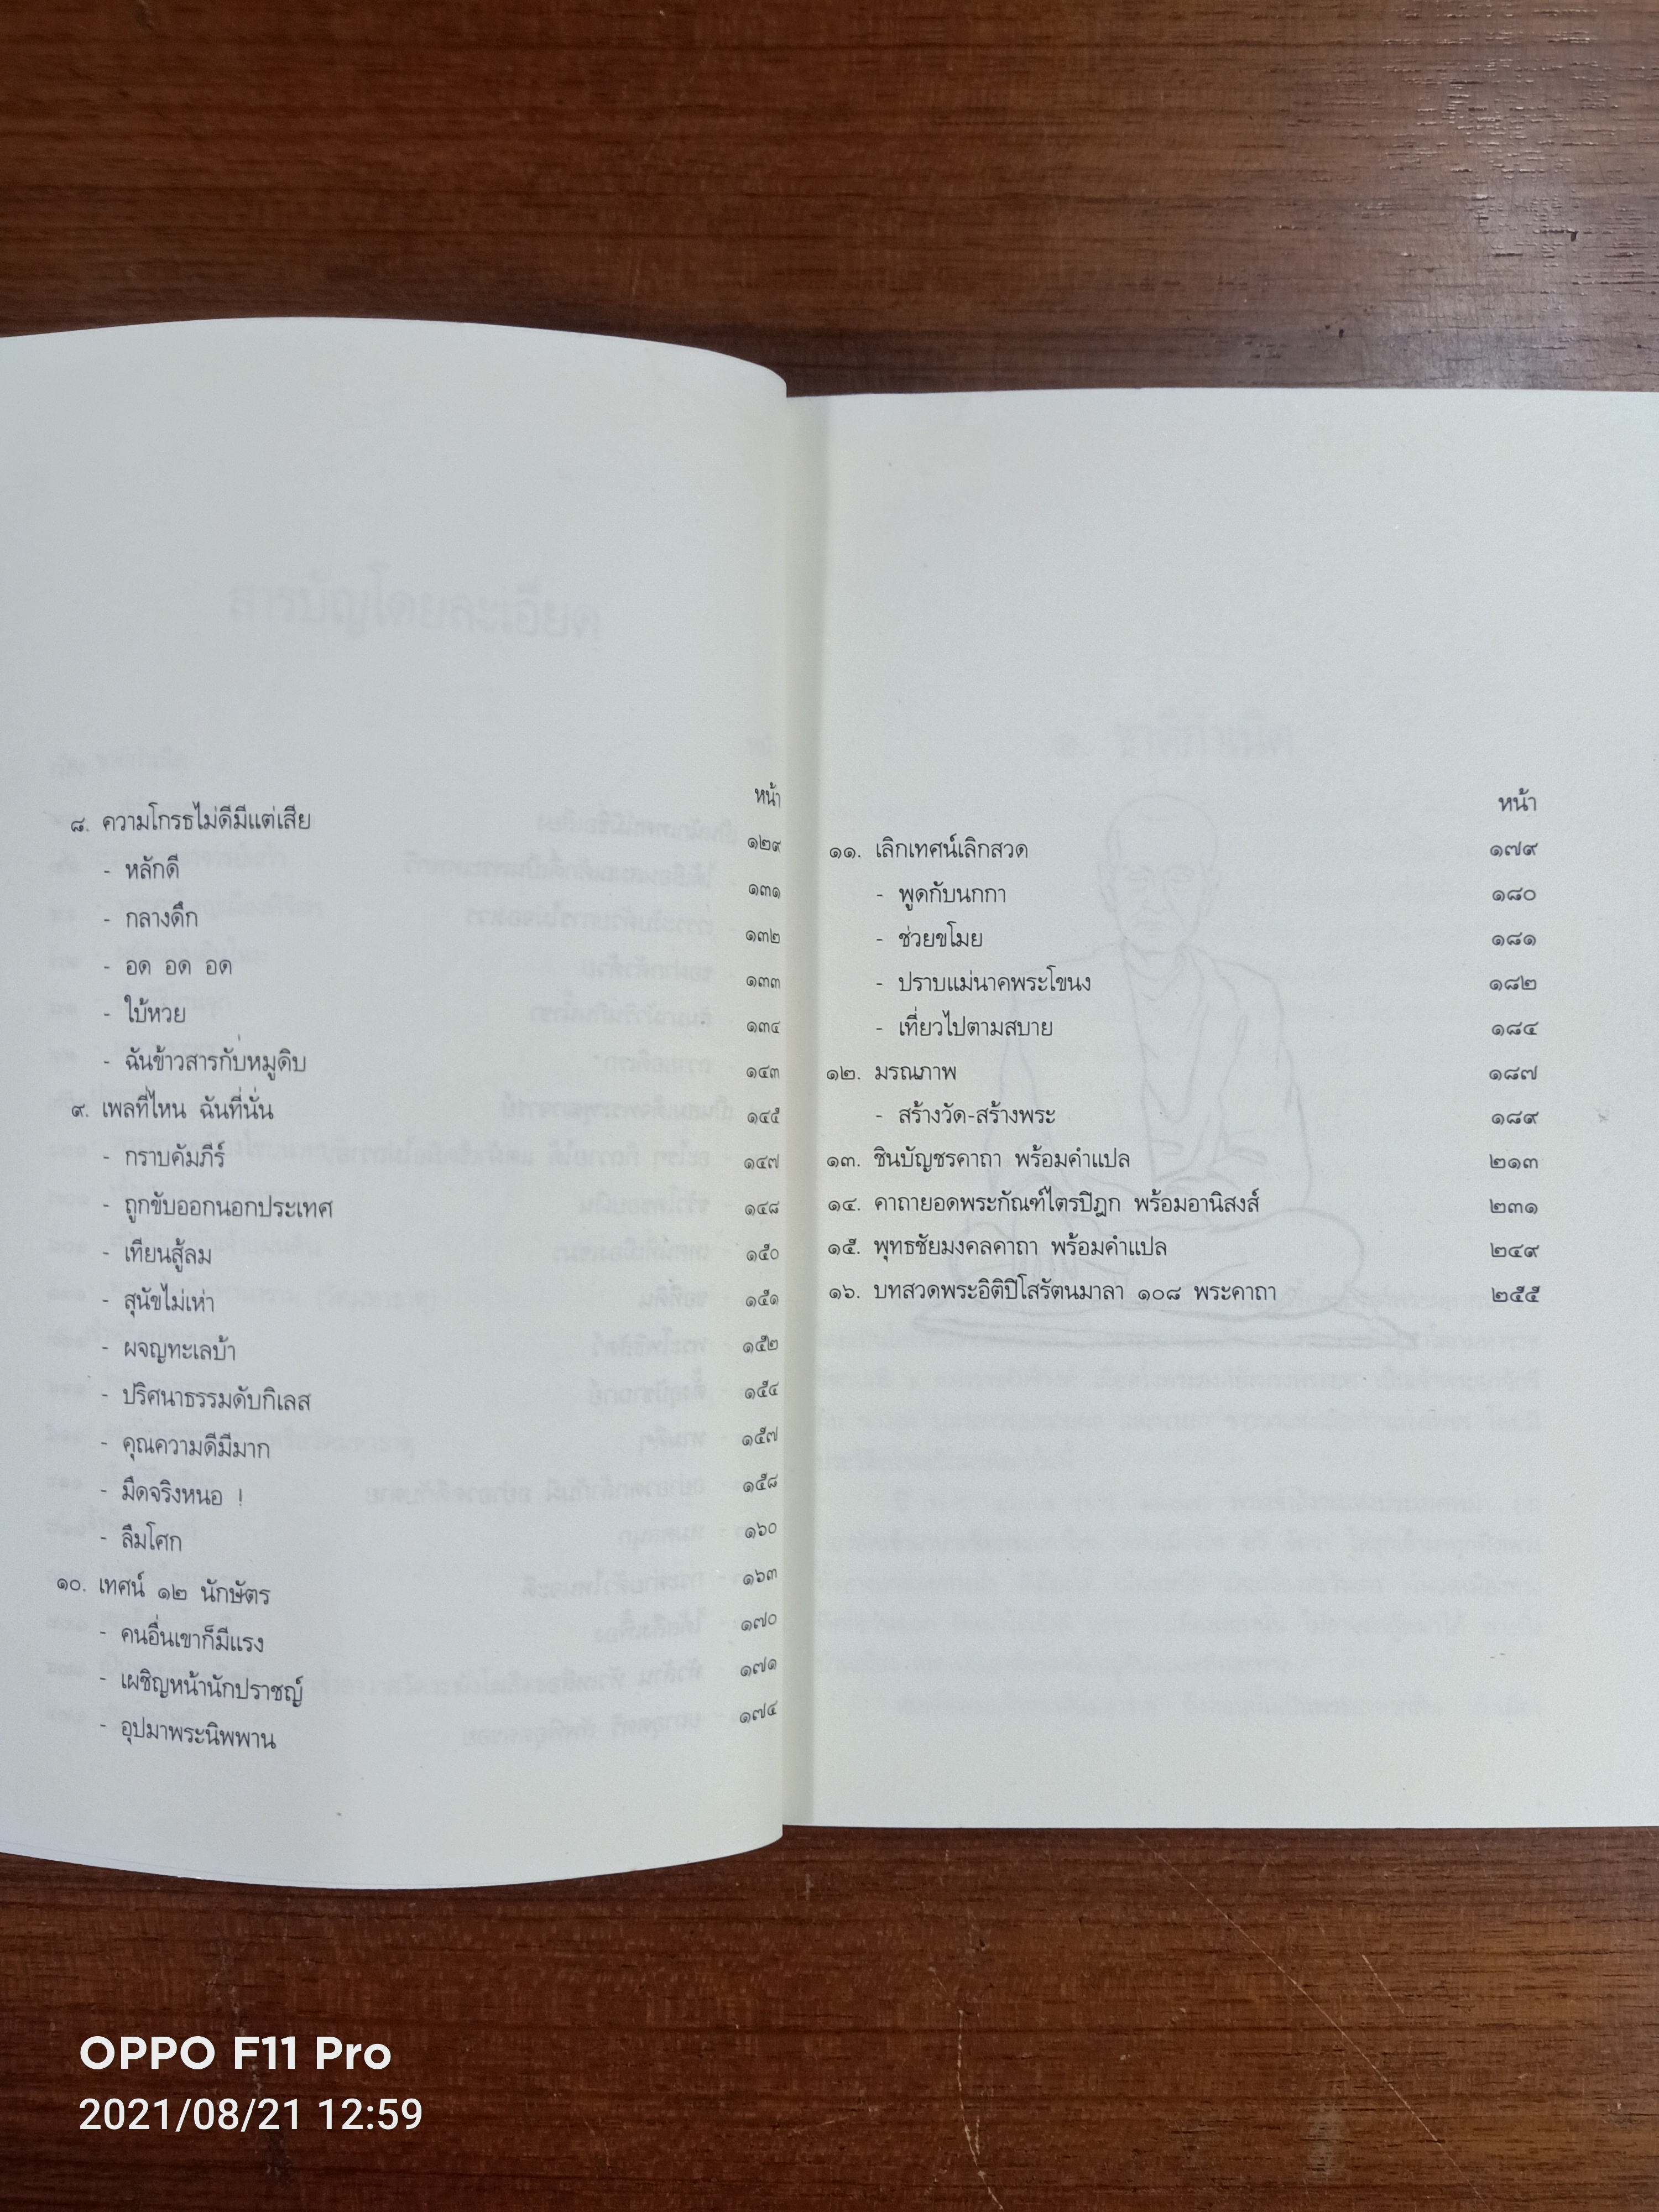 หน้า
๘. ความโกรธไม่ดีมีแต่เสีย ๑๒๙
- หลักดี ๑๓๑
- กลางดึก ๑๓๒
- อด อด อด ๑๓๓
- ใบ้หวย ๑๓๔
- ฉันข้าวสารกับหมูดิบ ๑๔๓
๙. เพลที่ไหน ฉันที่นั่น ๑๔๕
- กราบคัมภีร์ ๑๔๗
- ถูกขับออกนอกประเทศ ๑๔๘
- เทียนสู้ลม ๑๕๐
- สุนัขไม่เห่า ๑๕๑
- ผจญทะเลบ้า ๑๕๒
- ปริศนาธรรมดับกิเลส ๑๕๔
- คุณความดีมีมาก ๑๕๗
- มืดจริงหนอ ! ๑๕๘
- ลืมโศก ๑๖๐
๑๐. เทศน์ ๑๒ นักษัตร ๑๖๓
- คนอื่นเขาก็มีแรง ๑๗๐
- เผชิญหน้านักปราชญ์ ๑๗๑
- อุปมาพระนิพพาน ๑๗๔
หน้า
๑๑. เลิกเทศน์เลิกสวด ๑๗๙
- พูดกับนกกา ๑๘๐
- ช่วยขโมย ๑๘๑
- ปราบแม่นาคพระโขนง ๑๘๒
- เที่ยวไปตามสบาย ๑๘๔
๑๒. มรณภาพ ๑๘๗
- สร้างวัด-สร้างพระ ๑๘๙
๑๓. ชินบัญชรคาถา พร้อมคำแปล ๒๑๓
๑๔. คาถายอดพระกัณฑ์ไตรปิฎก พร้อมอานิสงส์ ๒๓๑
๑๕. พุทธชัยมงคลคาถา พร้อมคำแปล ๒๔๙
๑๖. บทสวดพระอิติปิโสรัตนมาลา ๑๐๘ พระคาถา ๒๕๕
OPPO F11 Pro
2021/08/21 12:59